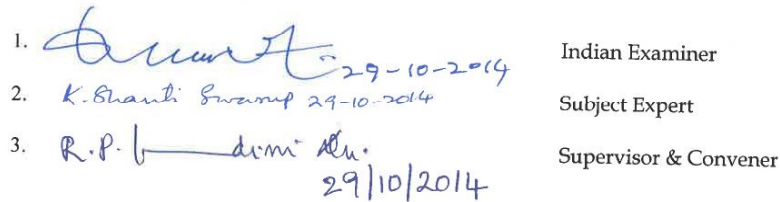 1. 29-10-2014 Indian Examiner
2. K. Shanti Swarup 29-10-2014 Subject Expert
3. R.P. Supervisor & Convener
29/10/2014